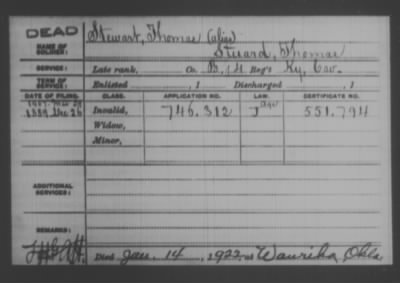 DEAD
Stewart, Thomas (alias
NAME OF SOLDIER:
Steward, Thomas
SERVICE: Late rank, Co. B, 4 Reg't Ky. Cav.
TERM OF SERVICE: Enlisted , 1 Discharged , 1
DATE OF FILING. CLASS. APPLICATION NO. LAW. CERTIFICATE NO.
1889 Dec 26 Invalid, 746.312 J 551.794
Widow,
Minor,
ADDITIONAL SERVICES:
REMARKS:
Died Jan. 14, 1922, at Waurika, Okla